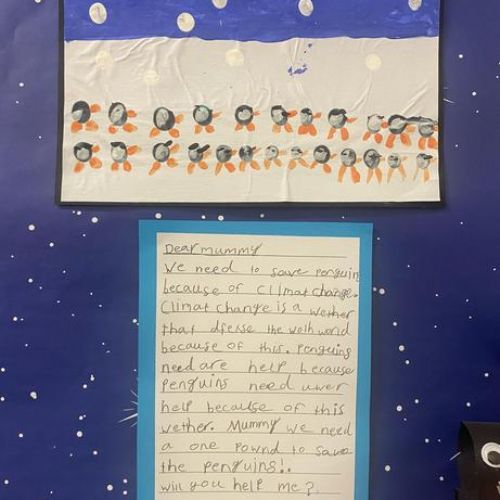 Dear mummy
We need to save penguin
because of Climat change.
Climat change is a wether
that dferse the wolh world
because of this. Penguins
need are help because
penguins need uwer
help because of this
wether. Mummy we need
a one pownd to save
the penguins!.
will you help me?